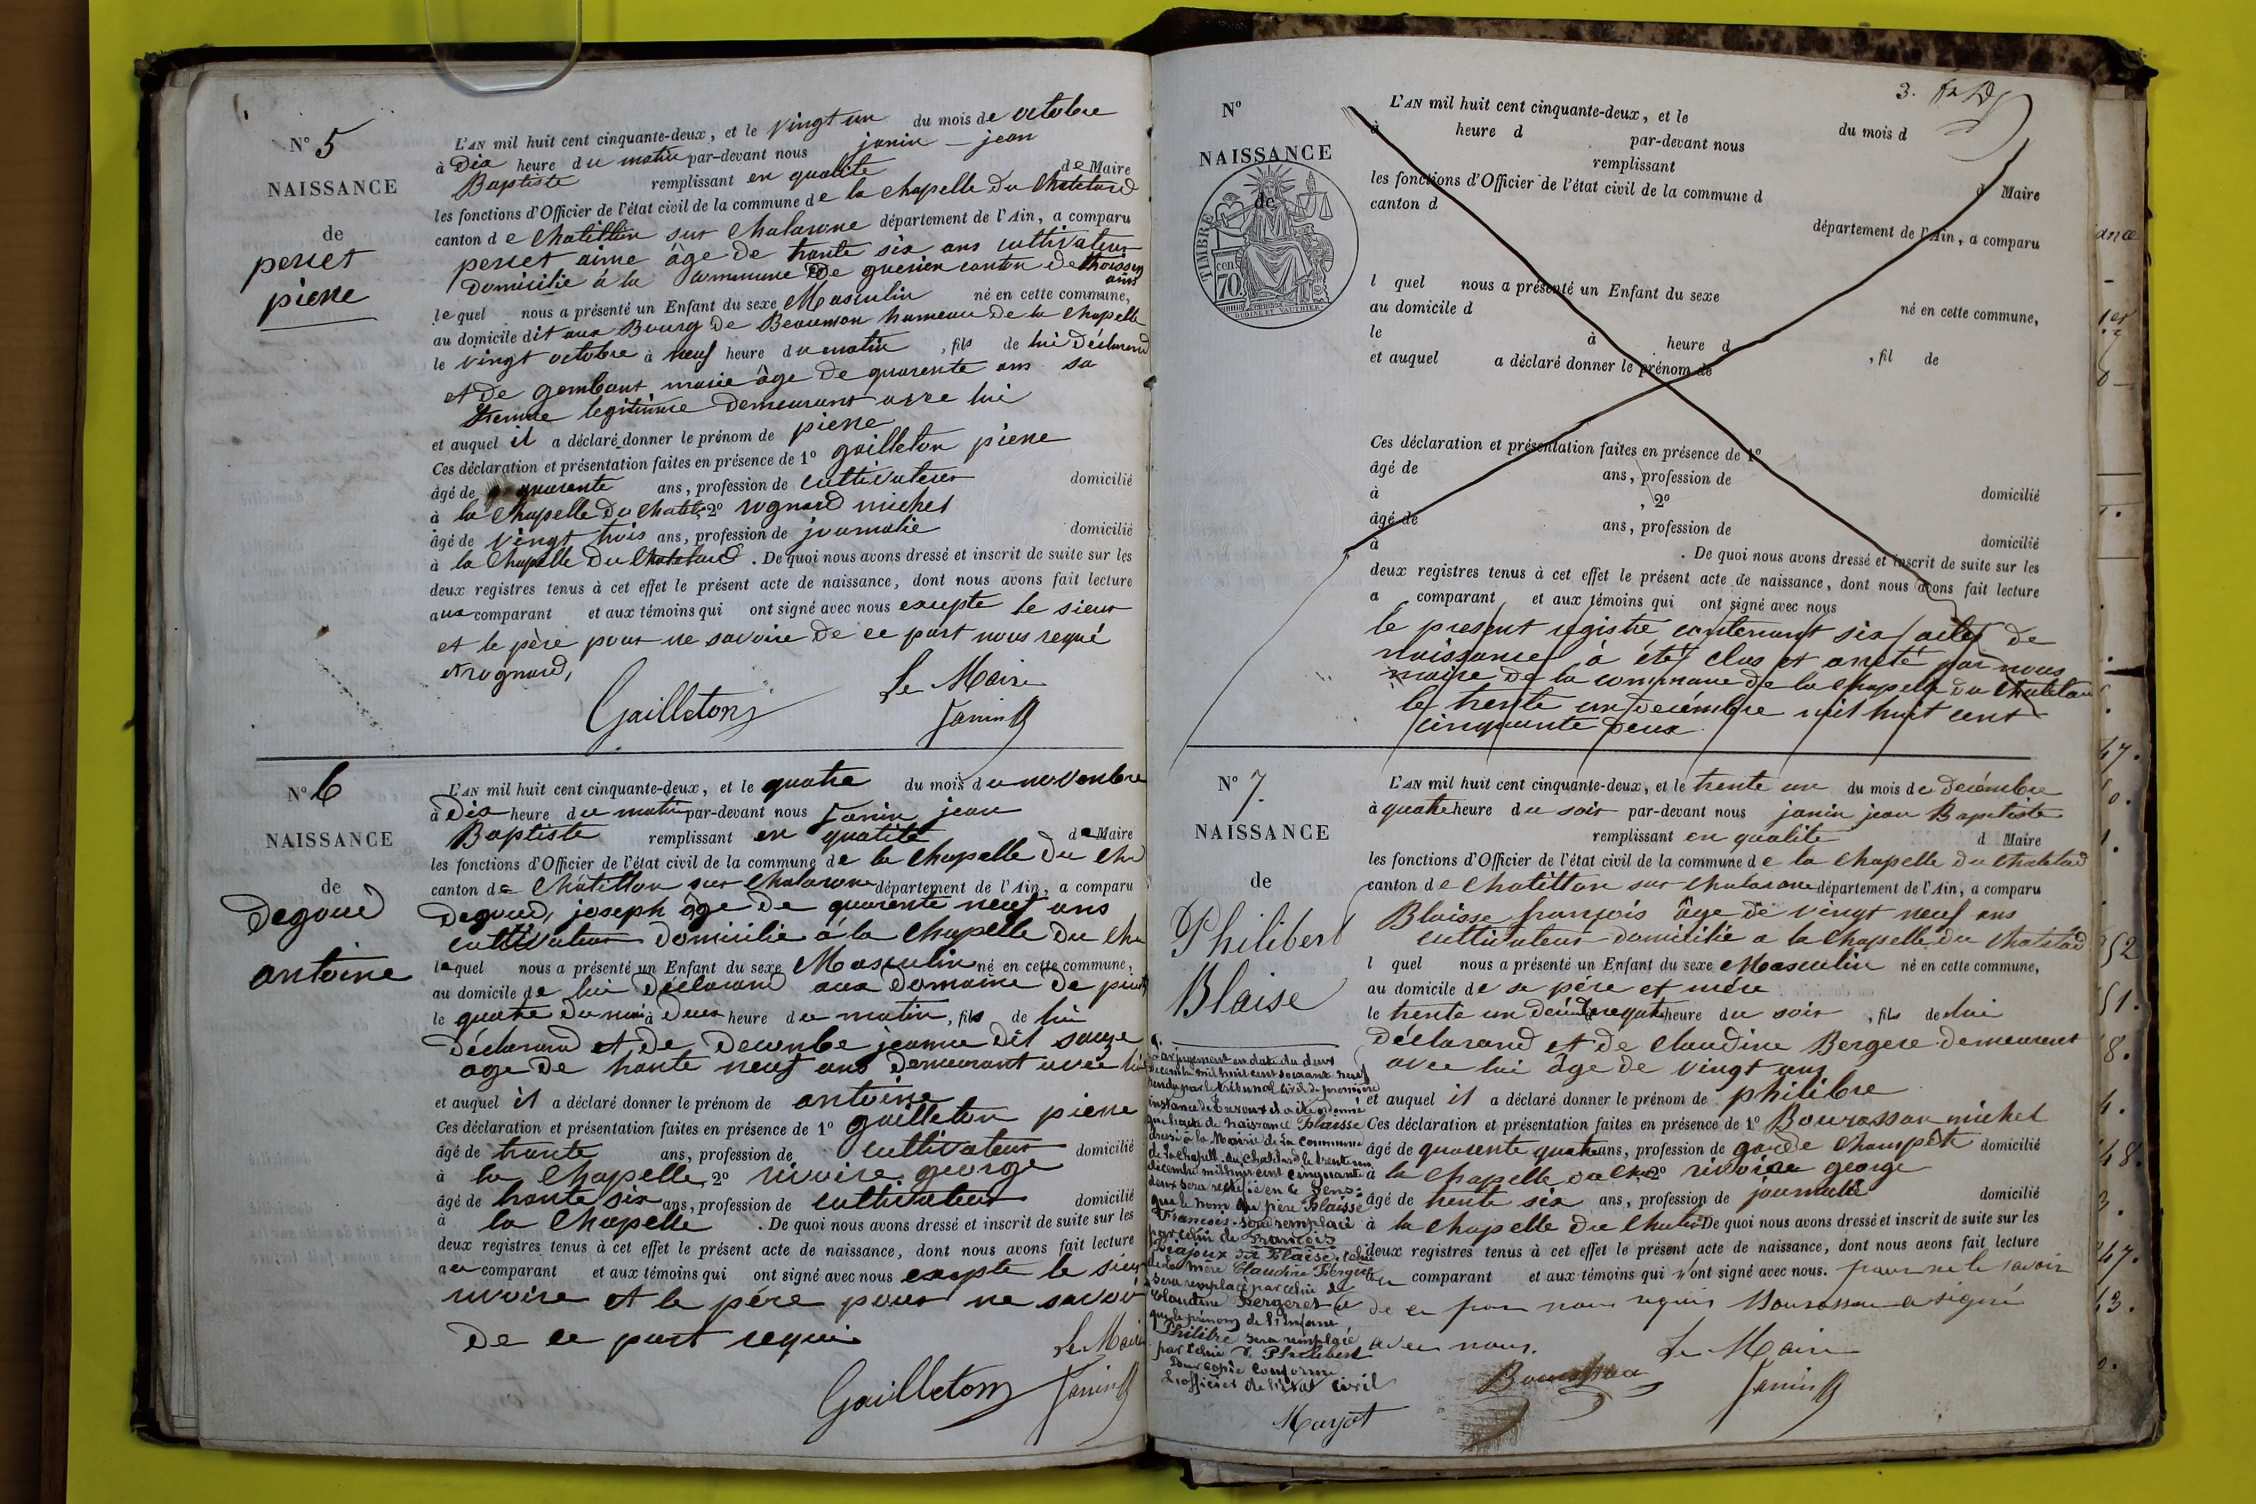 N° 5
NAISSANCE
de
perret
pierre
L'AN mil huit cent cinquante-deux, et le vingt un du mois de octobre
à Dix heure du matin par-devant nous janin - jean
Baptiste remplissant en qualité de Maire
les fonctions d'Officier de l'état civil de la commune de la chapelle du Chatelard
canton de Chatillon sur Chalarone département de l'Ain, a comparu
perret âge de trante six ans cultivateur
Domicilie à la commune de canton de thoissey
ains
lequel nous a présenté un Enfant du sexe Masculin né en cette commune,
au domicile dit aux Bourg de Beaumon hameau de la chapelle
le vingt octobre à neuf heure du matin, fils de lui Déclarand
et de gombaut marie âge de quarente ans sa
femme legitime demeurant avec lui
et auquel il a déclaré donner le prénom de pierre
Ces déclaration et présentation faites en présence de 1° gailleton pierre
âgé de quarente ans, profession de cultivateur domicilié
à la Chapelle du Chatel 2° rognard michel
âgé de vingt trois ans, profession de journalie domicilié
à la Chapelle du Chatelard. De quoi nous avons dressé et inscrit de suite sur les
deux registres tenus à cet effet le présent acte de naissance, dont nous avons fait lecture
aux comparant et aux témoins qui ont signé avec nous exepte le sieur
et le père pour ne savoire De ce part nous requé
et rognard,
Gailleton Le Maire
Janin B
N° 6
NAISSANCE
de
Degoud
antoine
L'AN mil huit cent cinquante-deux, et le quatre du mois du novembre
à Dix heure du matin par-devant nous Janin jean
Baptiste remplissant en qualité de Maire
les fonctions d'Officier de l'état civil de la commune de la chapelle Du Cha
canton de Châtillon sur Chalarone département de l'Ain, a comparu
Degoud, joseph âge de quarente neuf ans
cultivateur domicilie à la Chapelle Du Cha
lequel nous a présenté un Enfant du sexe Masculin né en cette commune,
au domicile de lui Déclarand aux Domaine De
le quatre Du mois à Deux heure du matin, fils de lui
Déclarand et De Decembe jeanne Dit
age De trante neuf ans Demeurant avec lui
et auquel il a déclaré donner le prénom de antoine
Ces déclaration et présentation faites en présence de 1° gailleton pierre
âgé de trante ans, profession de cultivateur domicilié
à la Chapelle 2° rivoire george
âgé de trante six ans, profession de cultivateur domicilié
à la Chapelle. De quoi nous avons dressé et inscrit de suite sur les
deux registres tenus à cet effet le présent acte de naissance, dont nous avons fait lecture
au comparant et aux témoins qui ont signé avec nous exepte le sieur
rivoire et le père pour ne savoir
De ce part requi
Le Maire
Gailleton Janin B
3.
N°
NAISSANCE
de
TIMBRE
cen
70.
OUDINE ET VAUTHIER
L'AN mil huit cent cinquante-deux, et le du mois d
à heure d par-devant nous
remplissant d Maire
les fonctions d'Officier de l'état civil de la commune d
canton d département de l'Ain, a comparu
l quel nous a présenté un Enfant du sexe né en cette commune,
au domicile d
le à heure d , fil de
et auquel a déclaré donner le prénom de
Ces déclaration et présentation faites en présence de 1°
âgé de ans, profession de domicilié
à , 2°
âgé de ans, profession de domicilié
à . De quoi nous avons dressé et inscrit de suite sur les
deux registres tenus à cet effet le présent acte de naissance, dont nous avons fait lecture
a comparant et aux témoins qui ont signé avec nous
le present registre contenant six actes de
naissance à été clos et areté par nous
maire de la commune de la Chapelle du Chatelar
le trente un decémbre mil huit cent
cinquante deux
N° 7.
NAISSANCE
de
Philibert
Blaise
L'AN mil huit cent cinquante-deux, et le trente un du mois de decémbre
à quatre heure du soir par-devant nous janin jean Baptiste
remplissant en qualité d Maire
les fonctions d'Officier de l'état civil de la commune de la Chapelle du Chatelad
canton de Chatillon sur Chalarone département de l'Ain, a comparu
Blaisse françois âge de vingt neuf ans
cultivateur domicilié a la Chapelle du Chatelad
l quel nous a présenté un Enfant du sexe Masculin né en cette commune,
au domicile de se père et mére
le trente un à quatre heure du soir, fils de lui
déclarand et de Claudine Bergere demeurent
avec lui âge de vingt ans
et auquel il a déclaré donner le prénom de philibre
Ces déclaration et présentation faites en présence de 1° Bourassau michel
âgé de quarente quatre ans, profession de garde Champête domicilié
à la Chapelle du Cha 2° rivoire george
âgé de trente six ans, profession de journallié domicilié
à la Chapelle du Chatel De quoi nous avons dressé et inscrit de suite sur les
deux registres tenus à cet effet le présent acte de naissance, dont nous avons fait lecture
au comparant et aux témoins qui n'ont signé avec nous. pour ne le savoir
de ce par nous requis Bourassau a signé
avec nous. Le Maire
Janin B
par jugement en date du deux
decembre mil huit cent soixante neuf
rendu par le tribunal civil de première
instance de Trevoux il a été ordonné
que l'acte de naissance Blaisse
dressé à la Mairie de La Commune
de la Chapelle du Chatelard le trente un
décembre mil huit cent cinquante
deux sera rectifié en ce sens:
que le nom du père Blaisse
Francois sera remplacé
par celui de Francois
Dit Blaise, celui
de la mère Claudine Bergere
sera remplacé par celui de
Claudine Bergeret et
que le prénom de l'enfant
Philibre sera remplacé
par celui de Philibert
Pour copie conforme
L'officier de l'état civil
Marjot